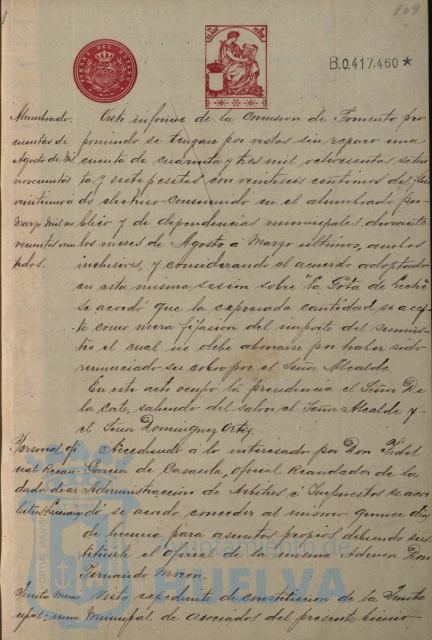 109
B.0.417,460 *
Alumbrado. Visto informe de la Comision de Fomento pro
cuentas de poniendo se tengan por vistas sin reparo una
Agosto de mil cuenta de cuarenta y tres mil ochocientas seten
novecientos ta y siete pesetas con veintiseis centimos del fluido
veintiuno a de electrico consumido en el alumbrado pu
Marzo mil no blico y de dependencias municipales durante
los meses de Agosto á Marzo ultimos, ambos
inclusives, y considerando el acuerdo adoptado
en esta misma sesion sobre "la Gota de Leche"
se acordó que la expresada cantidad se acep
te como mera fijacion del importe del suminis
tro el cual no debe abonarse por haber sido
renunciado su cobro por el Señor Alcalde.
En este acto ocupó la presidencia el Señor De
la Corte, saliendo del salon, el Señor Alcalde y
el Señor Dominguez Ortiz.
Personal ofi Accediendo á lo interesado por Don Fidel
cial Recau Garcia de Casasola, oficial Recaudador de la
dador Administracion de Arbitrios é Impuestos se acor
dó se acordó conceder al mismo quince dias
de licencia para asuntos propios debiendo sus
tituirle el oficial de la misma Don
Fernando Moron.
Junta Muni Visto expediente de constitucion de la Junta
cipal: Municipal de asociados del presente
Ayuntamiento de
HUELVA